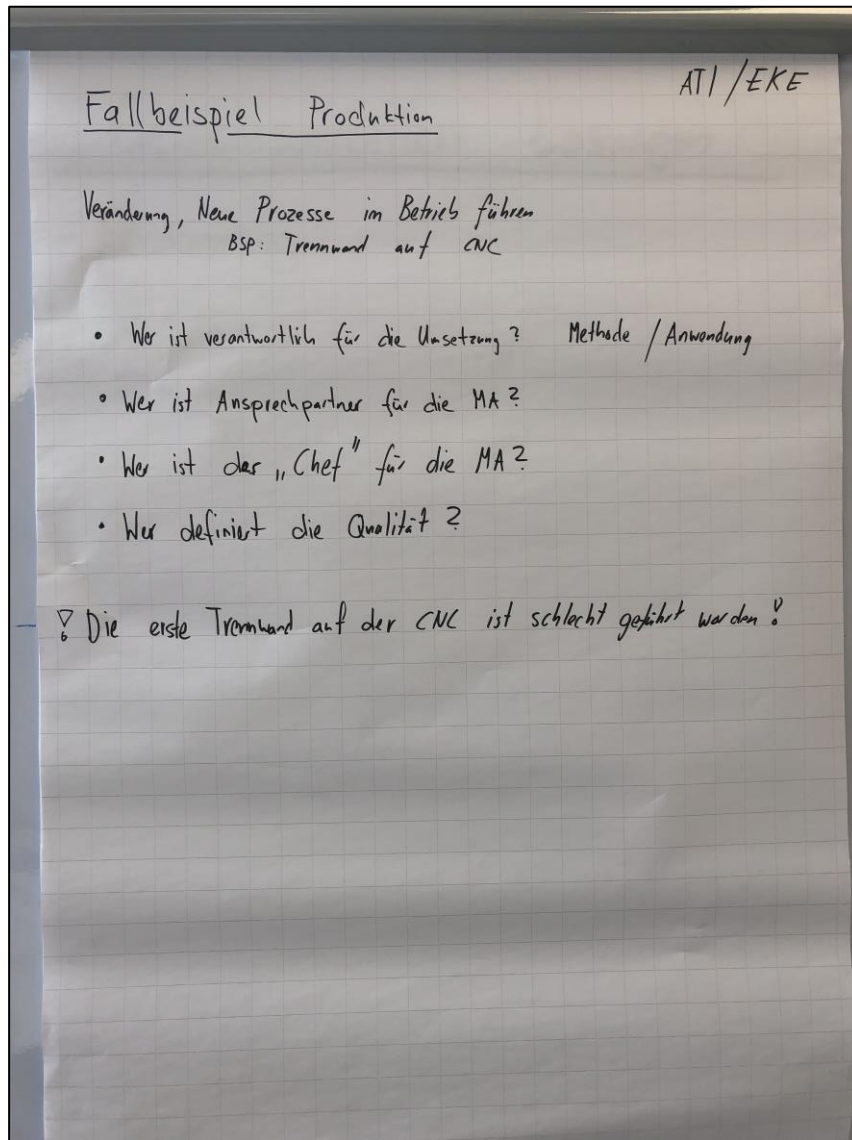 ATI / EKE
Fallbeispiel Produktion
Veränderung, Neue Prozesse im Betrieb führen
BSP: Trennwand auf CNC
• Wer ist verantwortlich für die Umsetzung? Methode / Anwendung
• Wer ist Ansprechpartner für die MA?
• Wer ist der „Chef" für die MA?
• Wer definiert die Qualität?
! Die erste Trennwand auf der CNC ist schlecht geführt worden!